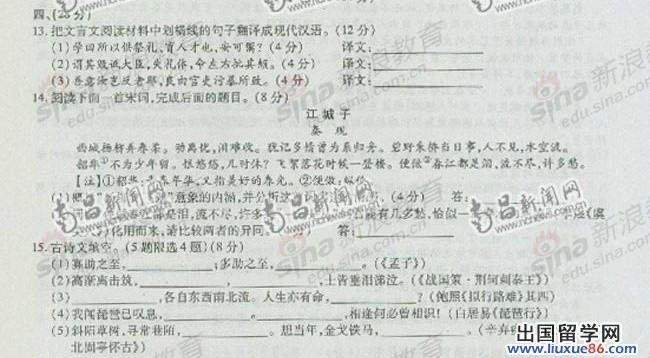 四、(25分)
13. 把文言文阅读材料中划横线的句子翻译成现代汉语。(12分)
(1)学田所以供祭礼,育人才也,安可鬻?(4分) 译文:
(2)谓其毁诋大臣,失礼体,今左右拉其颊。(4分) 译文:
(3) (4分) 译文:
14. 阅读下面一首宋词,完成后面的题目。(8分)
江城子
秦观
西城杨柳弄春柔。动离忧,泪难收。犹记多情曾为系归舟。碧野朱桥当日事,人不见,水空流。
韶华①不为少年留。恨悠悠,几时休?飞絮落花时候一登楼。便做②春江都是泪,流不尽,许多愁。
【注】①韶华:青春年华,又指美好的春光。②便做:纵使
(1) 意象的内涵,并分析这 (4分) 答:
都是泪,流不尽,许多 能有几多愁,恰似一
化用而来,请比较两者的异同。 答:
15. 古诗文填空。(5题限选4题)(8分)
(1)寡助之至, ;多助之至, 。(《孟子》)
(2)高渐离击筑, , ,士皆垂泪涕泣。(《战国策·荆轲刺秦王》)
(3) ,各自东西南北流。人生亦有命, ?(鲍照《拟行路难》其四)
(4)我闻琵琶已叹息, 。 ,相逢何必曾相识!(白居易《琵琶行》)
(5)斜阳草树,寻常巷陌, 。想当年,金戈铁马, 。(辛弃疾
北固亭怀古》)
南昌新闻网
sina 新浪教育
edu.sina.com.cn
出国留学网
www.liuxue86.com